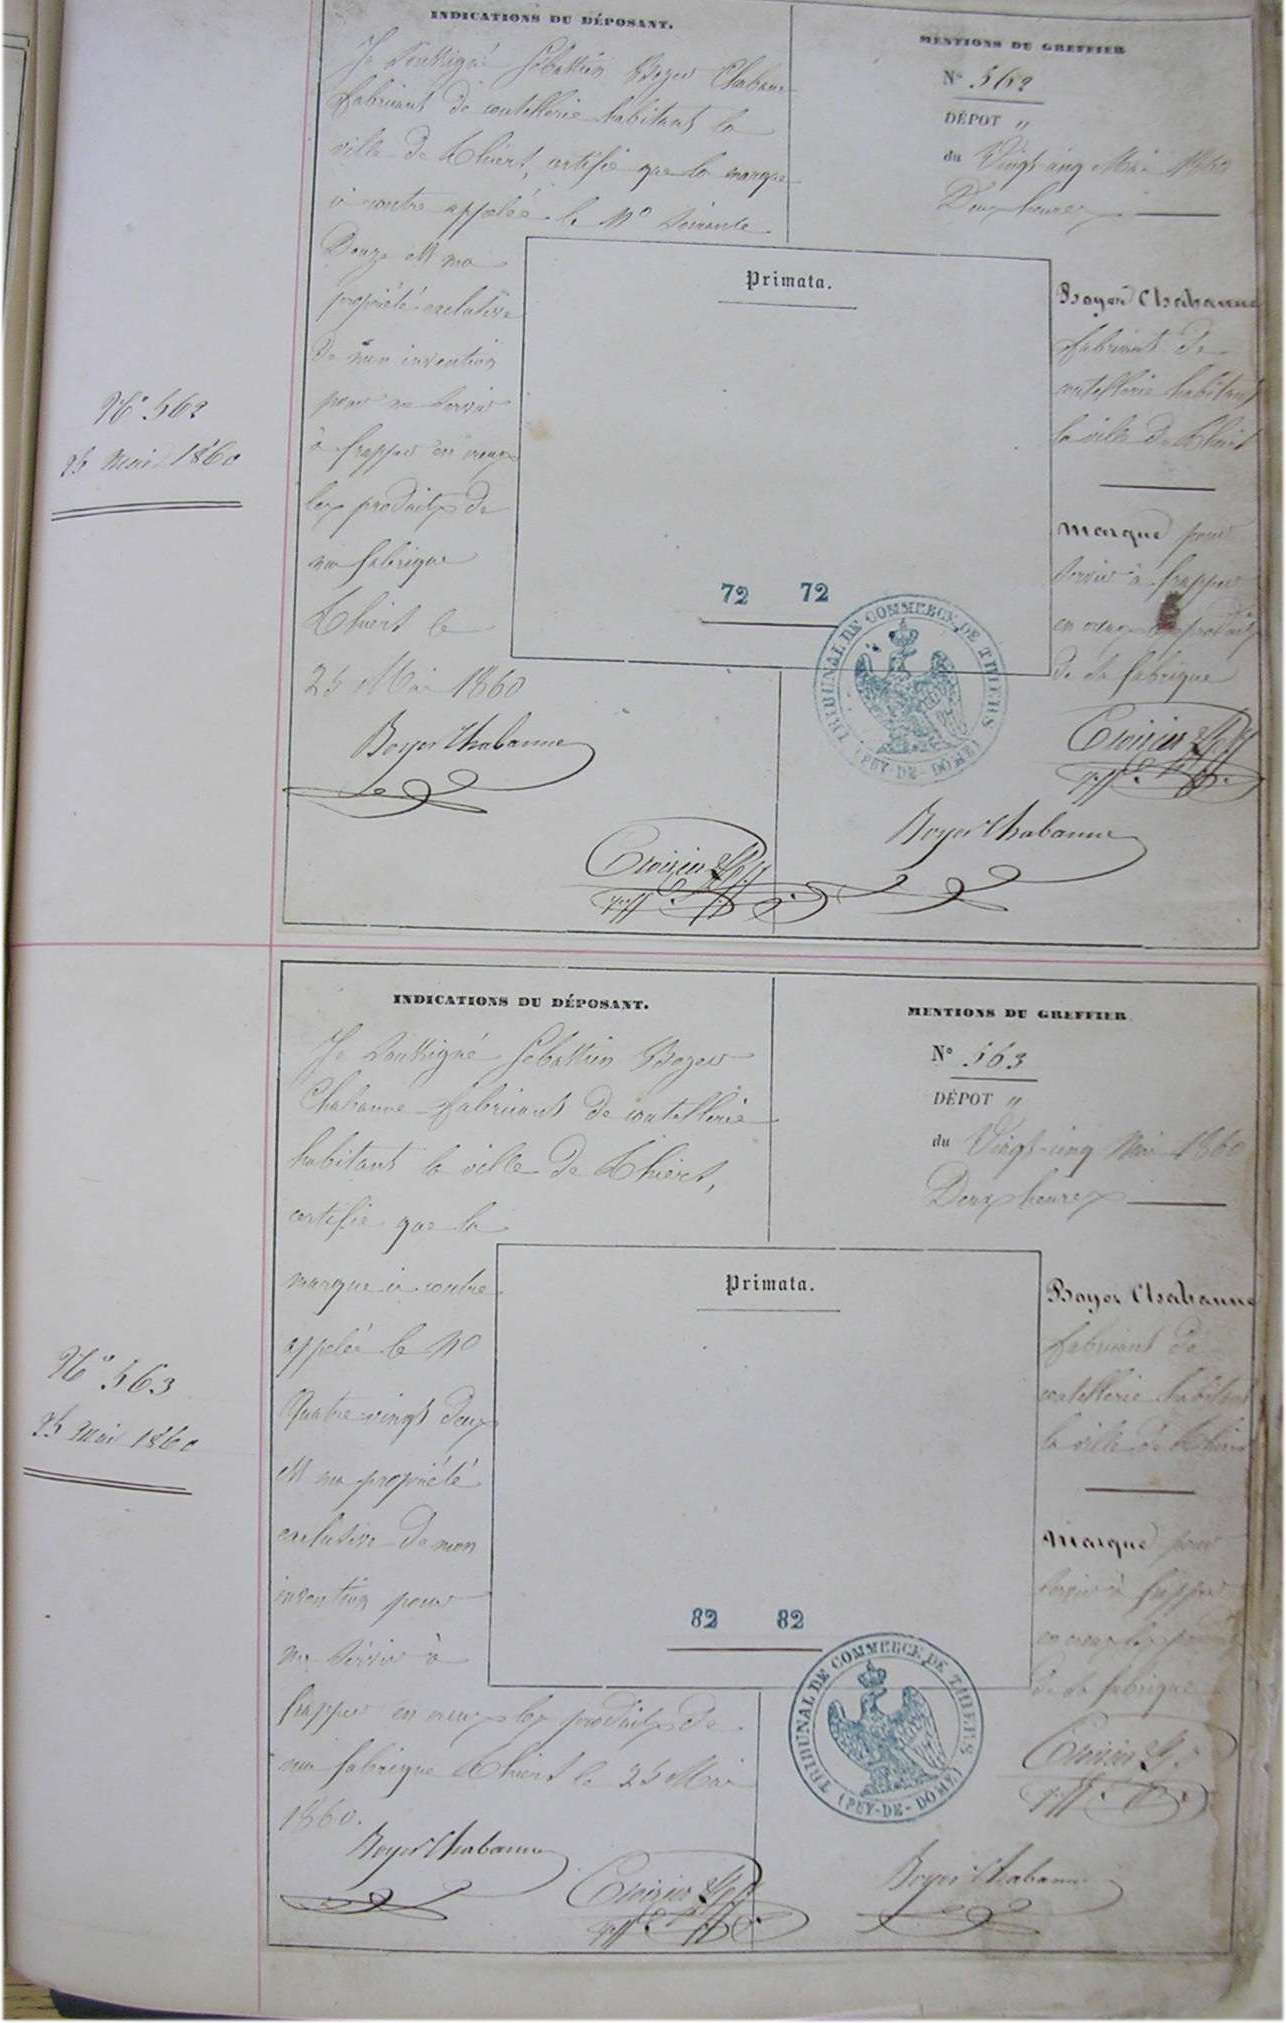 N° 562
25 mai 1860
INDICATIONS DU DÉPOSANT.
Je Soussigné Sébastien Boyer Chabanne
fabricant de coutellerie habitant la
ville de Thiers, certifie que la marque
ci contre appelée le N° Soixante
Douze est ma
propriété exclusive
de mon invention
pour me servir
à frapper en creux
les produits de
ma fabrique
Thiers le
25 Mai 1860
Boyer Chabanne
MENTIONS DU GREFFIER
N° 562
DÉPOT "
du Vingt-cinq Mai 1860
Deux heures
Primata.
72 72
TRIBUNAL DE COMMERCE DE THIERS
(PUY-DE-DOME)
Boyer Chabanne
fabricant de
coutellerie habitant
la ville de Thiers
Marque pour
servir à frapper
en creux les produits
de sa fabrique
Croizier
Boyer Chabanne
Croizier
N° 563
25 mai 1860
INDICATIONS DU DÉPOSANT.
Je Soussigné Sébastien Boyer
Chabanne fabricant de coutellerie
habitant la ville de Thiers,
certifie que la
marque ci contre
appelée le N°
Quatre vingt deux
est ma propriété
exclusive de mon
invention pour
me servir à
frapper en creux les produits de
ma fabrique Thiers le 25 Mai
1860.
Boyer Chabanne
MENTIONS DU GREFFIER
N° 563
DÉPOT "
du Vingt-cinq Mai 1860
Deux heures
Primata.
82 82
TRIBUNAL DE COMMERCE DE THIERS
(PUY-DE-DOME)
Boyer Chabanne
fabricant de
coutellerie habitant
la ville de Thiers
Marque pour
servir à frapper
en creux les produits
de sa fabrique
Croizier
Boyer Chabanne
Croizier